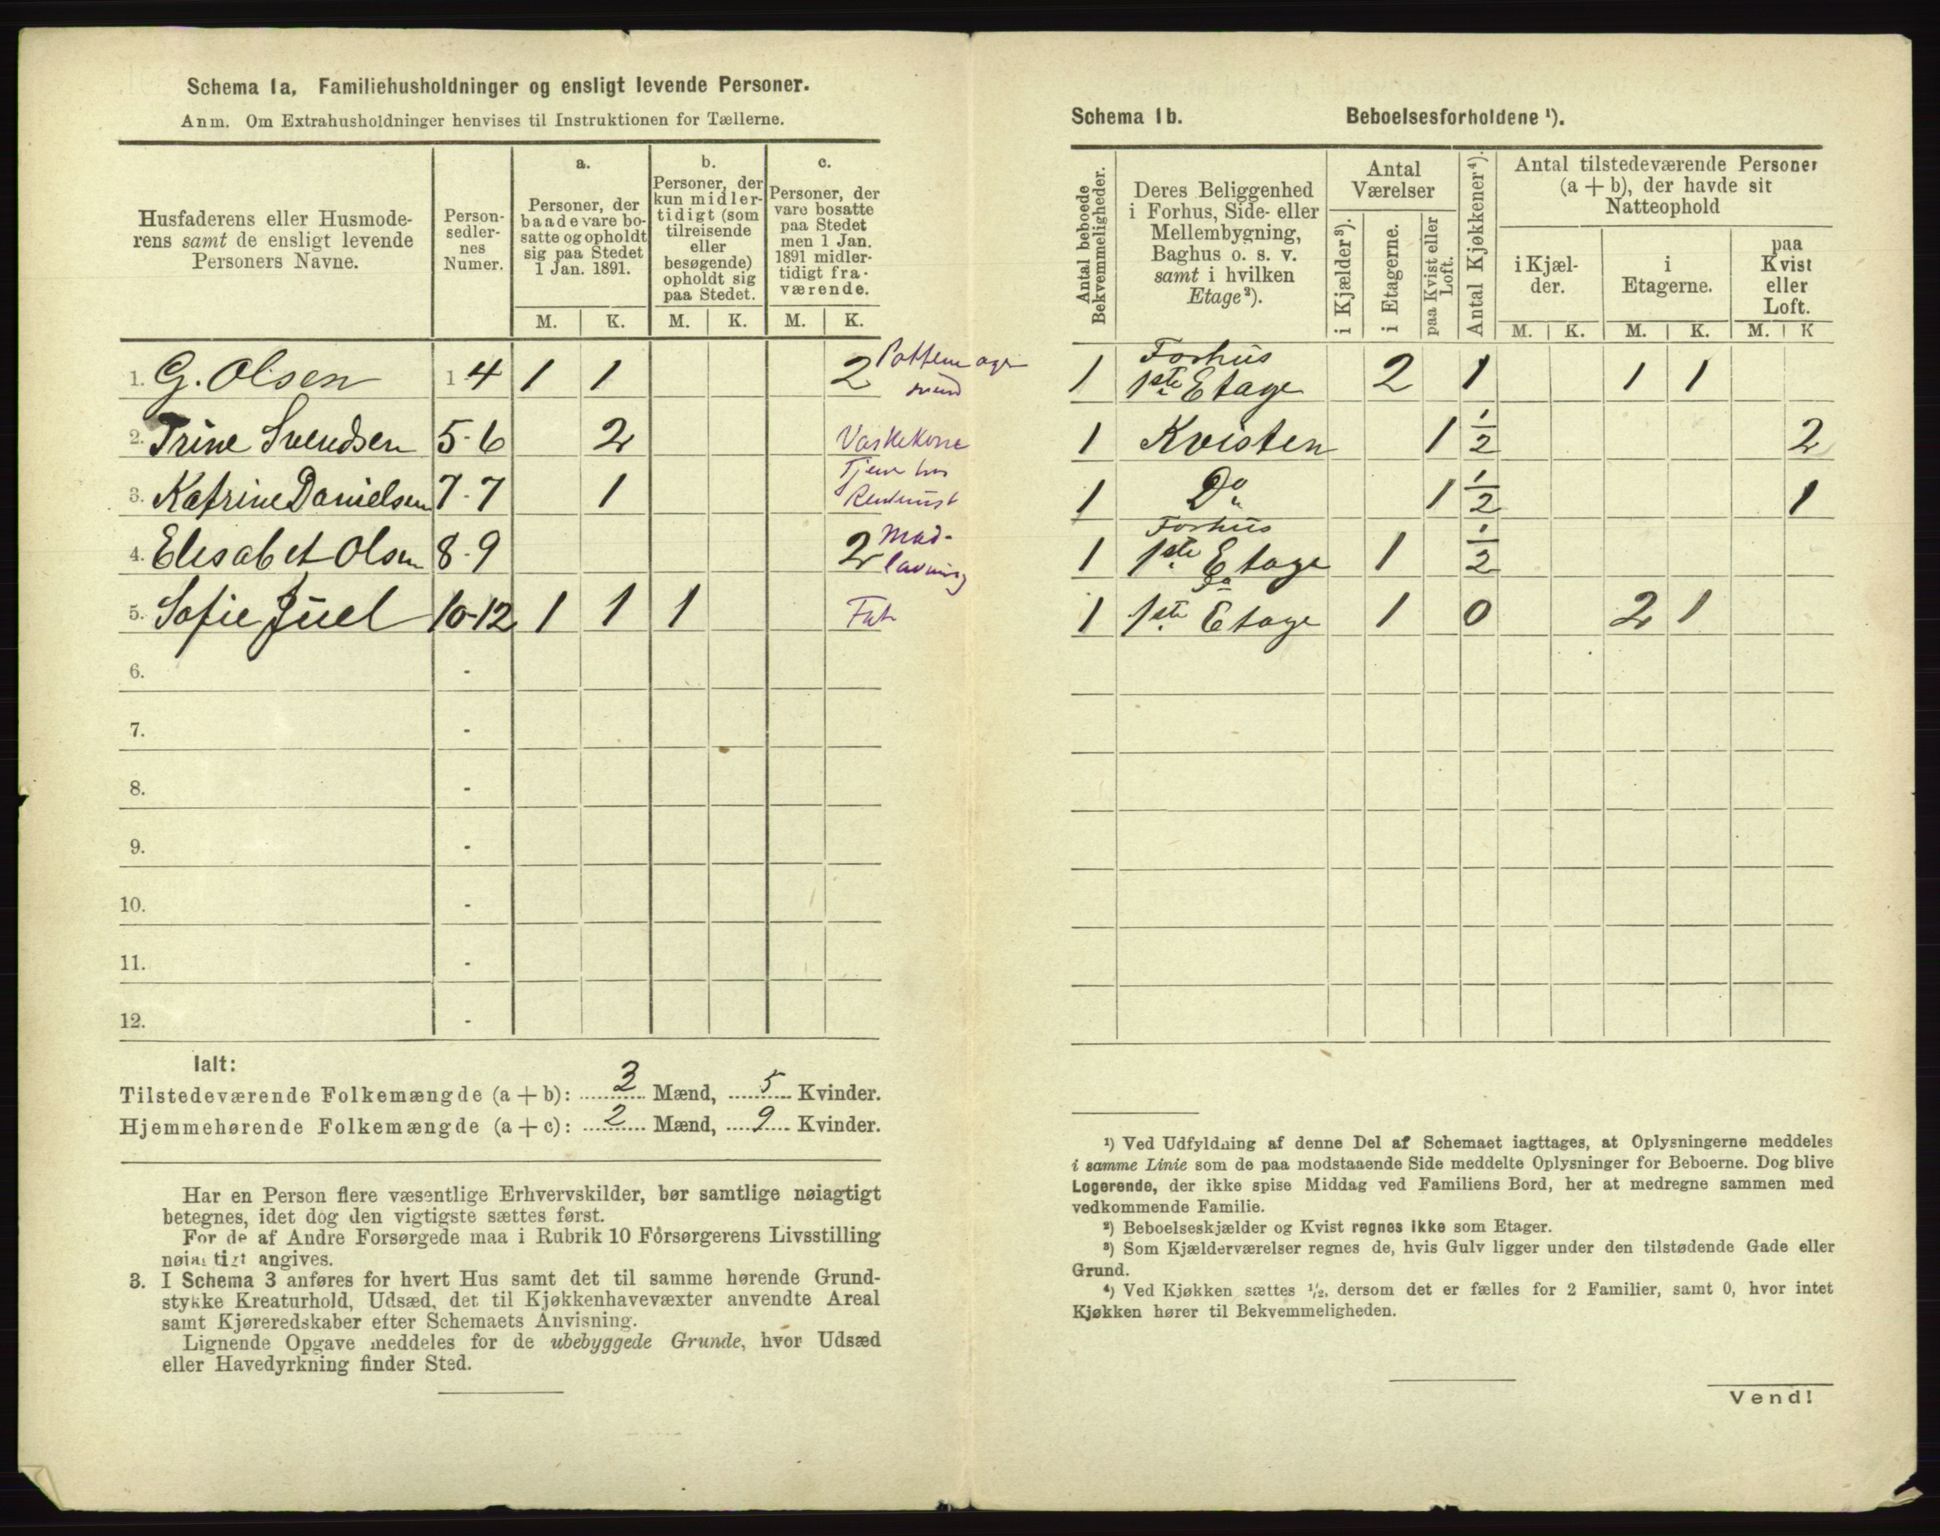 Schema 1a, Familiehusholdninger og ensligt levende Personer.
Anm. Om Extrahusholdninger henvises til Instruktionen for Tællerne.
Husfaderens eller Husmode-
rens samt de ensligt levende
Personers Navne.
Person-
sedler-
nes
Numer.
a.
Personer, der
baade vare bo-
satte og opholdt
sig paa Stedet
1 Jan. 1891.
b.
Personer, der
kun midler-
tidigt (som
tilreisende
eller
besøgende)
opholdt sig
paa Stedet.
c.
Personer, der
vare bosatte
paa Stedet
men 1 Jan.
1891 midler-
tidigt fra-
værende.
M. K. M. K. M. K.
1. G. Olsen 1-4 1 1 2 Pottemager
svend
2. Trine Svendsen 5-6 2 Vaskekone
3. Katrine Danielsen 7-7 1 Tjener hos
4. Elisabet Olsen 8-9 2 Mad-
lavning
5. Sofie Juel 10-12 1 1 1
6. -
7. -
8. -
9. -
10. -
11. -
12. -
Ialt:
Tilstedeværende Folkemængde (a + b): 3 Mænd, 5 Kvinder.
Hjemmehørende Folkemængde (a + c): 2 Mænd, 9 Kvinder.
Har en Person flere væsentlige Erhvervskilder, bør samtlige nøiagtigt
betegnes, idet dog den vigtigste sættes først.
For de af Andre Forsørgede maa i Rubrik 10 Forsørgerens Livsstilling
nøiagtigt angives.
3. I Schema 3 anføres for hvert Hus samt det til samme hørende Grund-
stykke Kreaturhold, Udsæd, det til Kjøkkenhavevæxter anvendte Areal
samt Kjøreredskaber efter Schemaets Anvisning.
Lignende Opgave meddeles for de ubebyggede Grunde, hvor Udsæd
eller Havedyrkning finder Sted.
Schema 1b. Beboelsesforholdene ¹).
Antal beboede
Bekvemmeligheder.
Deres Beliggenhed
i Forhus, Side- eller
Mellembygning,
Baghus o. s. v.
samt i hvilken
Etage²).
Antal
Værelser
i Kjælder³).
i Etagerne.
paa Kvist eller
Loft.
Antal Kjøkkener⁴).
Antal tilstedeværende Personer
(a + b), der havde sit
Natteophold
i Kjæl-
der.
i
Etagerne.
paa
Kvist
eller
Loft.
M. K. M. K. M. K
1 Forhus
1ste Etage 2 1 1 1
1 Kvisten 1 1/2 2
1 Do 1 1/2 1
1 Forhus
1ste Etage 1 1/2
1 Do
1ste Etage 1 0 2 1
¹) Ved Udfyldning af denne Del af Schemaet iagttages, at Oplysningerne meddeles
i samme Linie som de paa modstaaende Side meddelte Oplysninger for Beboerne. Dog blive
Logerende, der ikke spise Middag ved Familiens Bord, her at medregne sammen med
vedkommende Familie.
²) Beboelseskjælder og Kvist regnes ikke som Etager.
³) Som Kjælderværelser regnes de, hvis Gulv ligger under den tilstødende Gade eller
Grund.
⁴) Ved Kjøkken sættes ½, dersom det er fælles for 2 Familier, samt 0, hvor intet
Kjøkken hører til Bekvemmeligheden.
Vend!